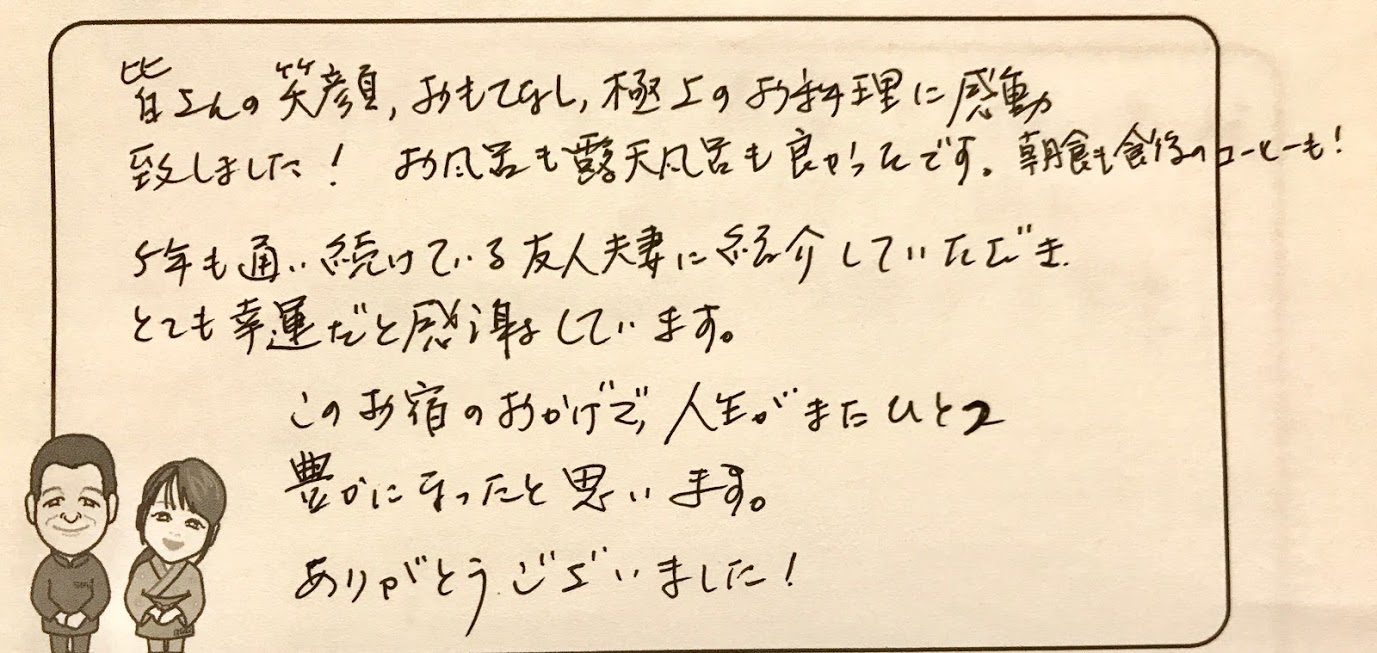 皆さんの笑顔,おもてなし,極上のお料理に感動
致しました! お風呂も露天風呂も良かったです。朝食も食後のコーヒーも!
5年も通い続けている友人夫妻に紹介していただき
とても幸運だと感謝しています。
このお宿のおかげで,人生がまたひとつ
豊かになったと思います。
ありがとうございました!